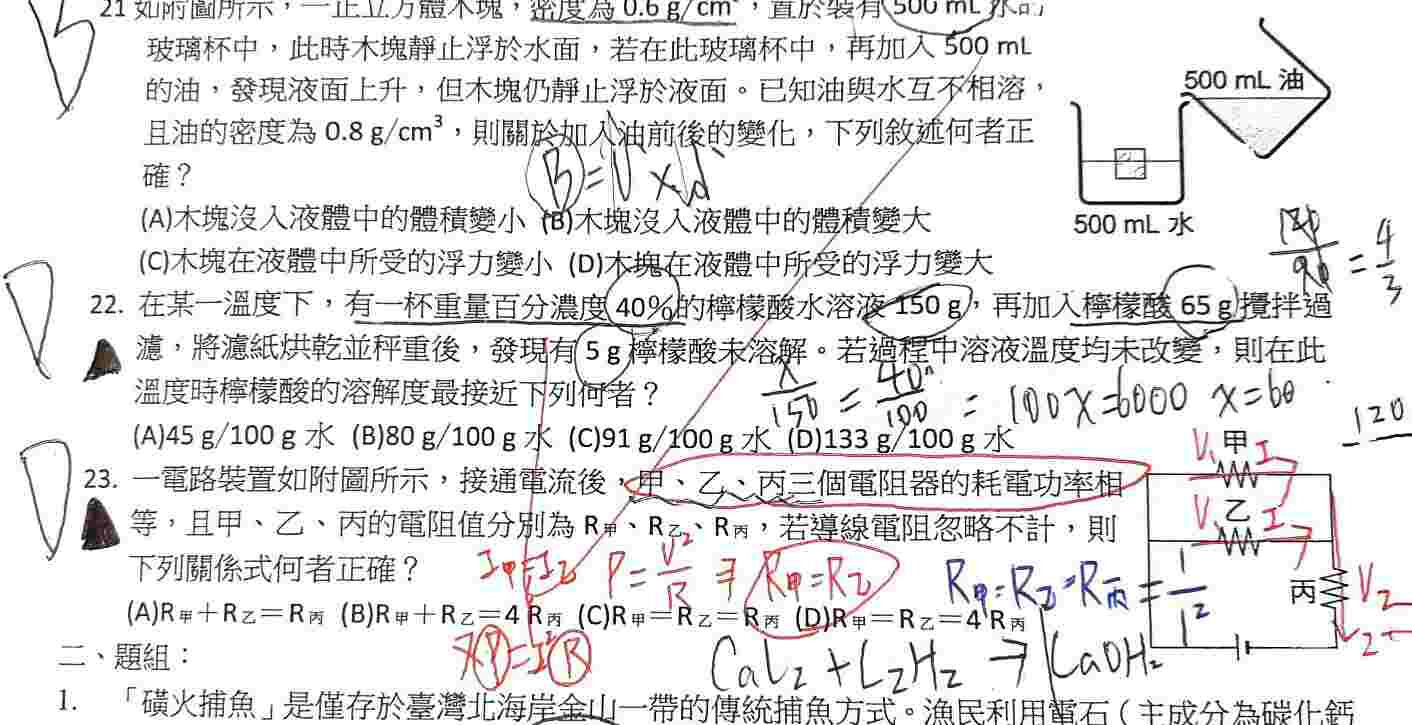 B
21 如附圖所示，一正立方體木塊，密度為 0.6 g/cm³，置於裝有 500 mL 水的
玻璃杯中，此時木塊靜止浮於水面，若在此玻璃杯中，再加入 500 mL
的油，發現液面上升，但木塊仍靜止浮於液面。已知油與水互不相溶，
且油的密度為 0.8 g/cm³，則關於加入油前後的變化，下列敘述何者正
確？
B=V×d
(A)木塊沒入液體中的體積變小 (B)木塊沒入液體中的體積變大
(C)木塊在液體中所受的浮力變小 (D)木塊在液體中所受的浮力變大
500 mL 油
500 mL 水
120/90=4/3
D
22. 在某一溫度下，有一杯重量百分濃度 40%的檸檬酸水溶液 150 g，再加入檸檬酸 65 g 攪拌過
濾，將濾紙烘乾並秤重後，發現有 5 g 檸檬酸未溶解。若過程中溶液溫度均未改變，則在此
溫度時檸檬酸的溶解度最接近下列何者？
X/150=40/100=100X=6000 X=60
120
(A)45 g/100 g 水 (B)80 g/100 g 水 (C)91 g/100 g 水 (D)133 g/100 g 水
D
23. 一電路裝置如附圖所示，接通電流後，甲、乙、丙三個電阻器的耗電功率相
等，且甲、乙、丙的電阻值分別為 R甲、R乙、R丙，若導線電阻忽略不計，則
下列關係式何者正確？
I甲=I乙 P=V²/R R甲=R乙
R甲=R乙=R丙=1/1²
(A)R甲＋R乙＝R丙 (B)R甲＋R乙＝4 R丙 (C)R甲＝R乙＝R丙 (D)R甲＝R乙＝4 R丙
P=I²R
V₁ 甲 I
V₁ 乙 I
丙 V₂
2I
二、題組：
CaC₂+C₂H₂→CaOH₂
1. 「磺火捕魚」是僅存於臺灣北海岸金山一帶的傳統捕魚方式。漁民利用電石（主成分為碳化鈣